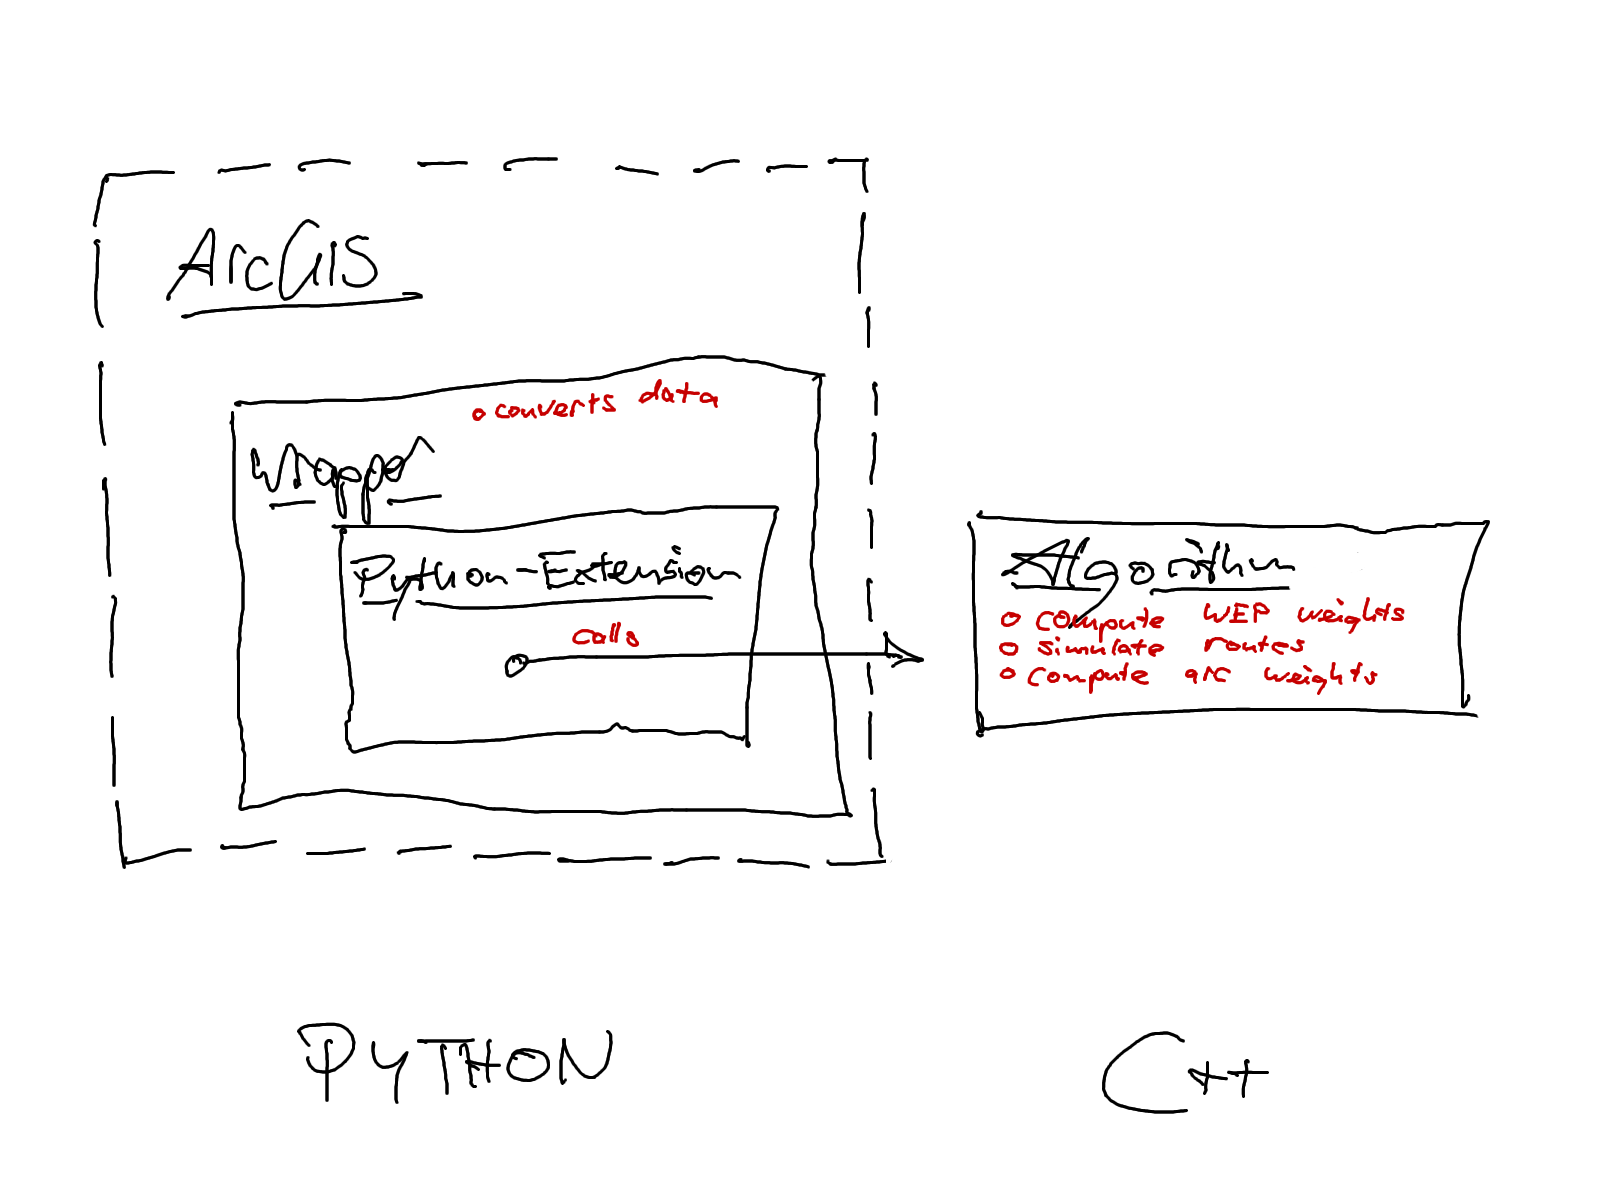 ArcGIS
o converts data
Wrapper
Python-Extension
calls
Algorithm
o compute WEP weights
o simulate routes
o compute arc weights
PYTHON
C++